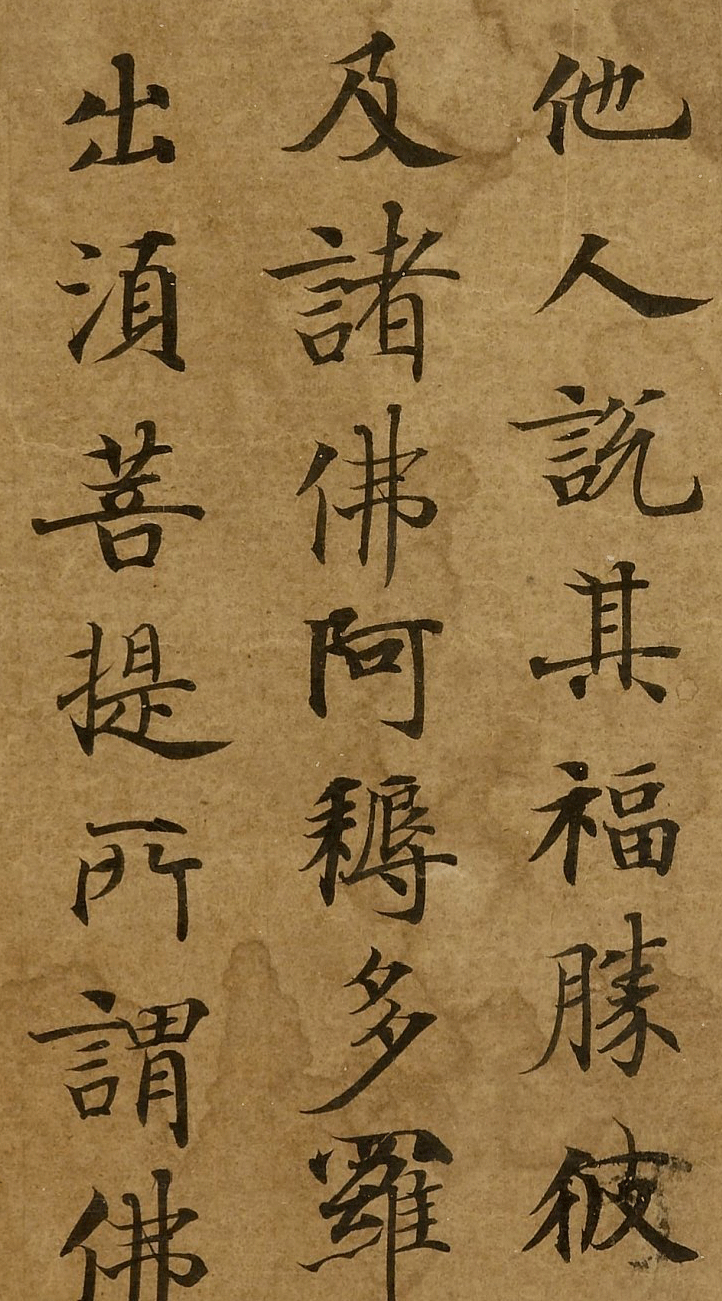 他人説其福勝彼
及諸佛阿耨多羅
出湏菩提所謂佛